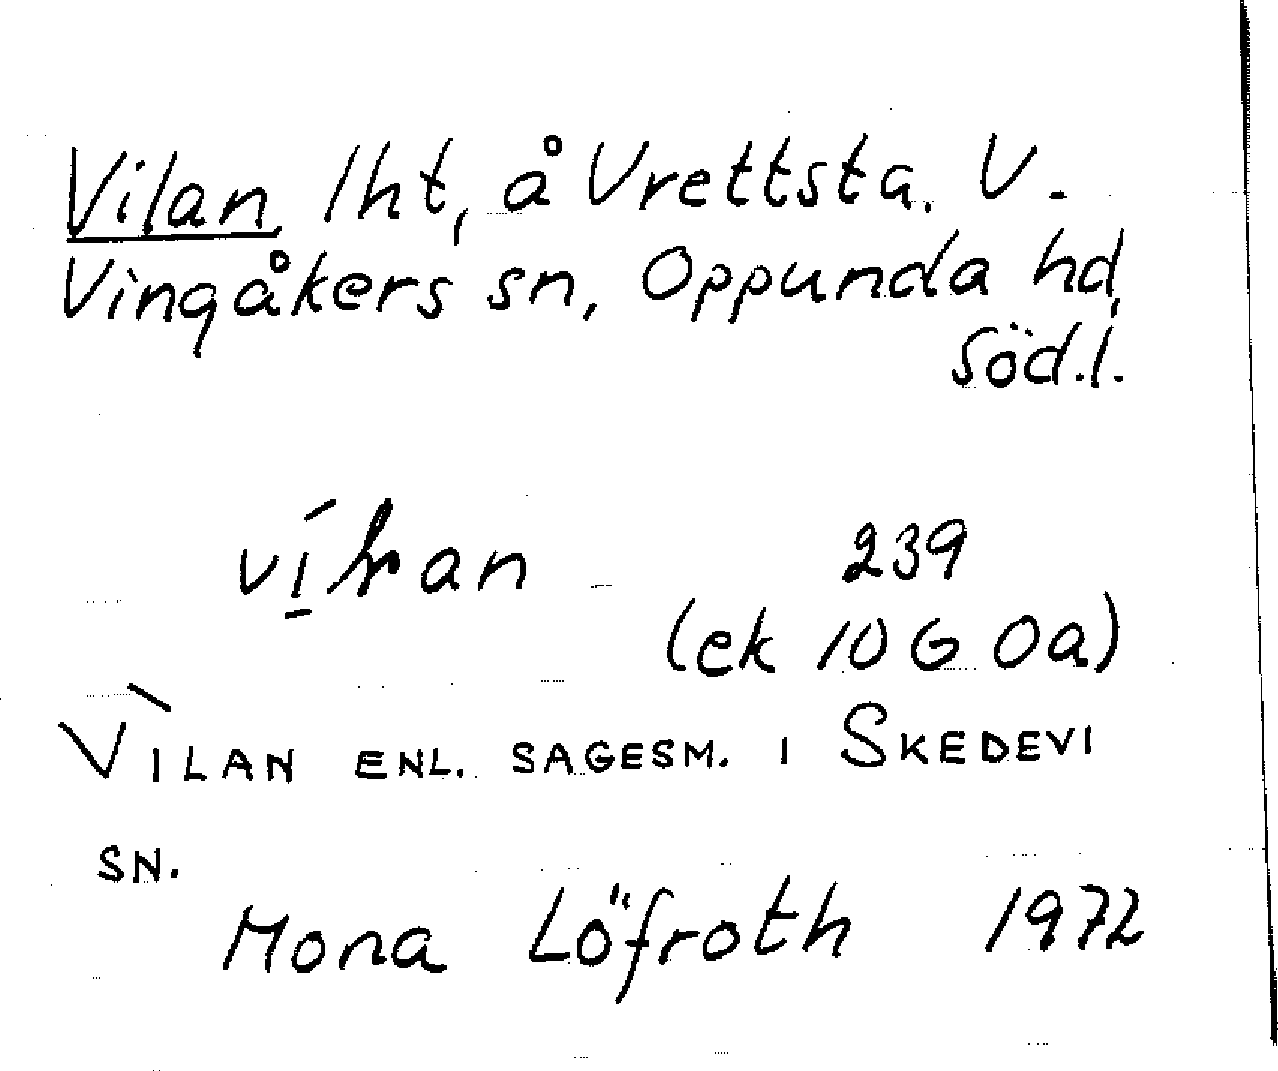 Vilan, lht, å Vrettsta. V.
Vingåkers sn, Oppunda hd,
Söd.l.
239
(ek 10 G 0a)
VÌLAN ENL. SAGESM. I SKEDEVI
SN.
Mona Löfroth 1972